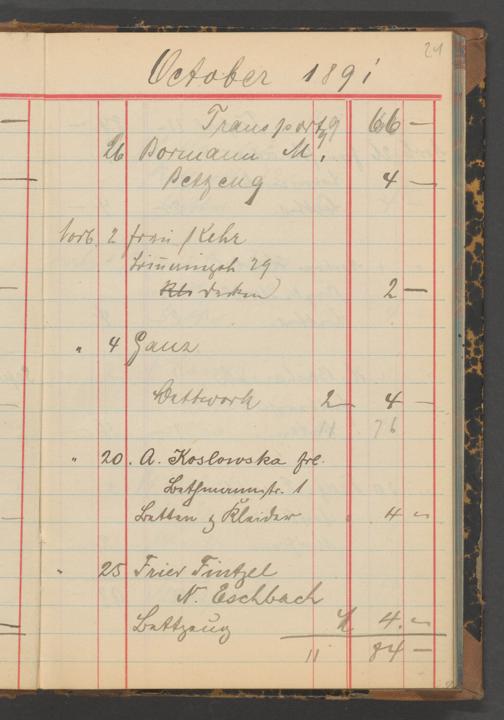 24
October 1891
Transport 9 66 —
26 Bormann M.
Bettzeug 4 —
Novb. 2 Frau Kehr
29
decken 2 —
" 4 Ganz
Bettwerk 2 4 —
11 76
" 20. A. Koslowska frl.
Bethmannstr. 1
Betten & Kleider 4 —
" 25 Frier Tintzel
N. Eschbach
Bettzeug 4. —
11 84 —